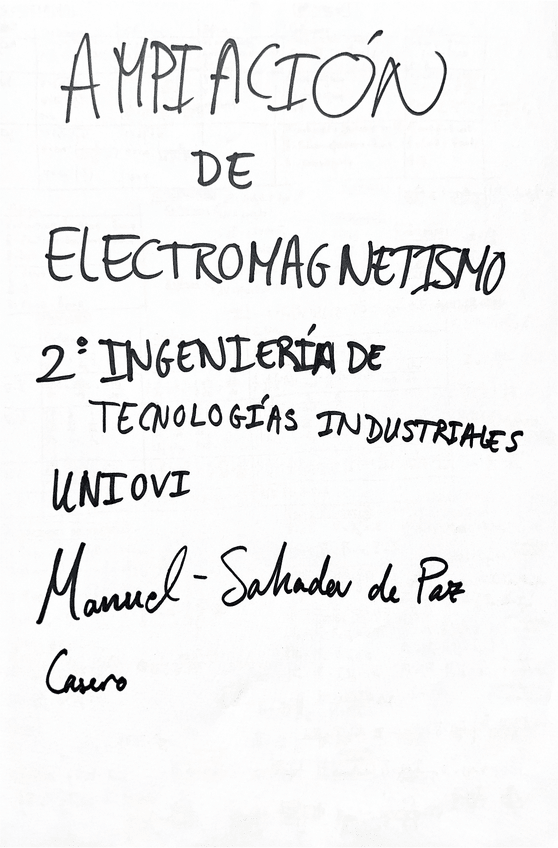 AMPIACIÓN
DE
ELECTROMAGNETISMO
2º INGENIERÍA DE
TECNOLOGÍAS INDUSTRIALES
UNIOVI
Manuel-Salvador de Paz
Casero